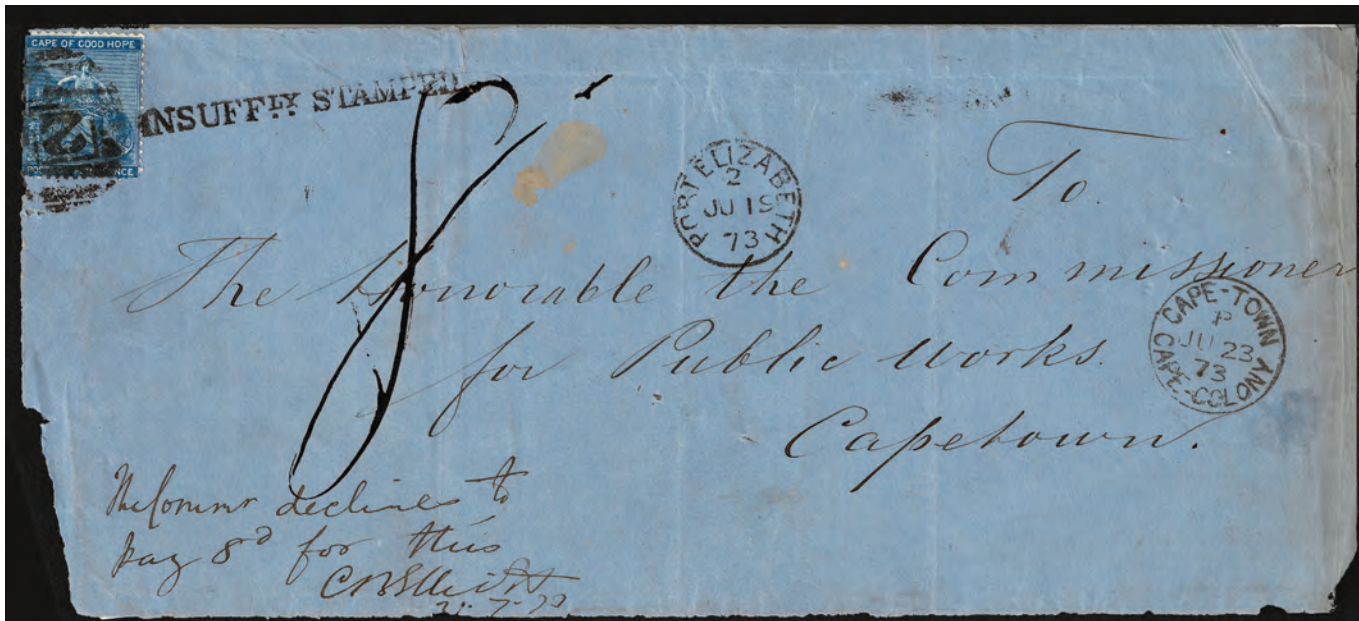 CAPE OF GOOD HOPE
2
INSUFFLY STAMPED
8
PORT ELIZABETH
2
JU 19
73
To.
The Honorable the Commissioner
for Public Works.
Capetown.
CAPE-TOWN
P
JU 23
73
CAPE-COLONY
The Commr declines to
pay 8d for this
CBElliott